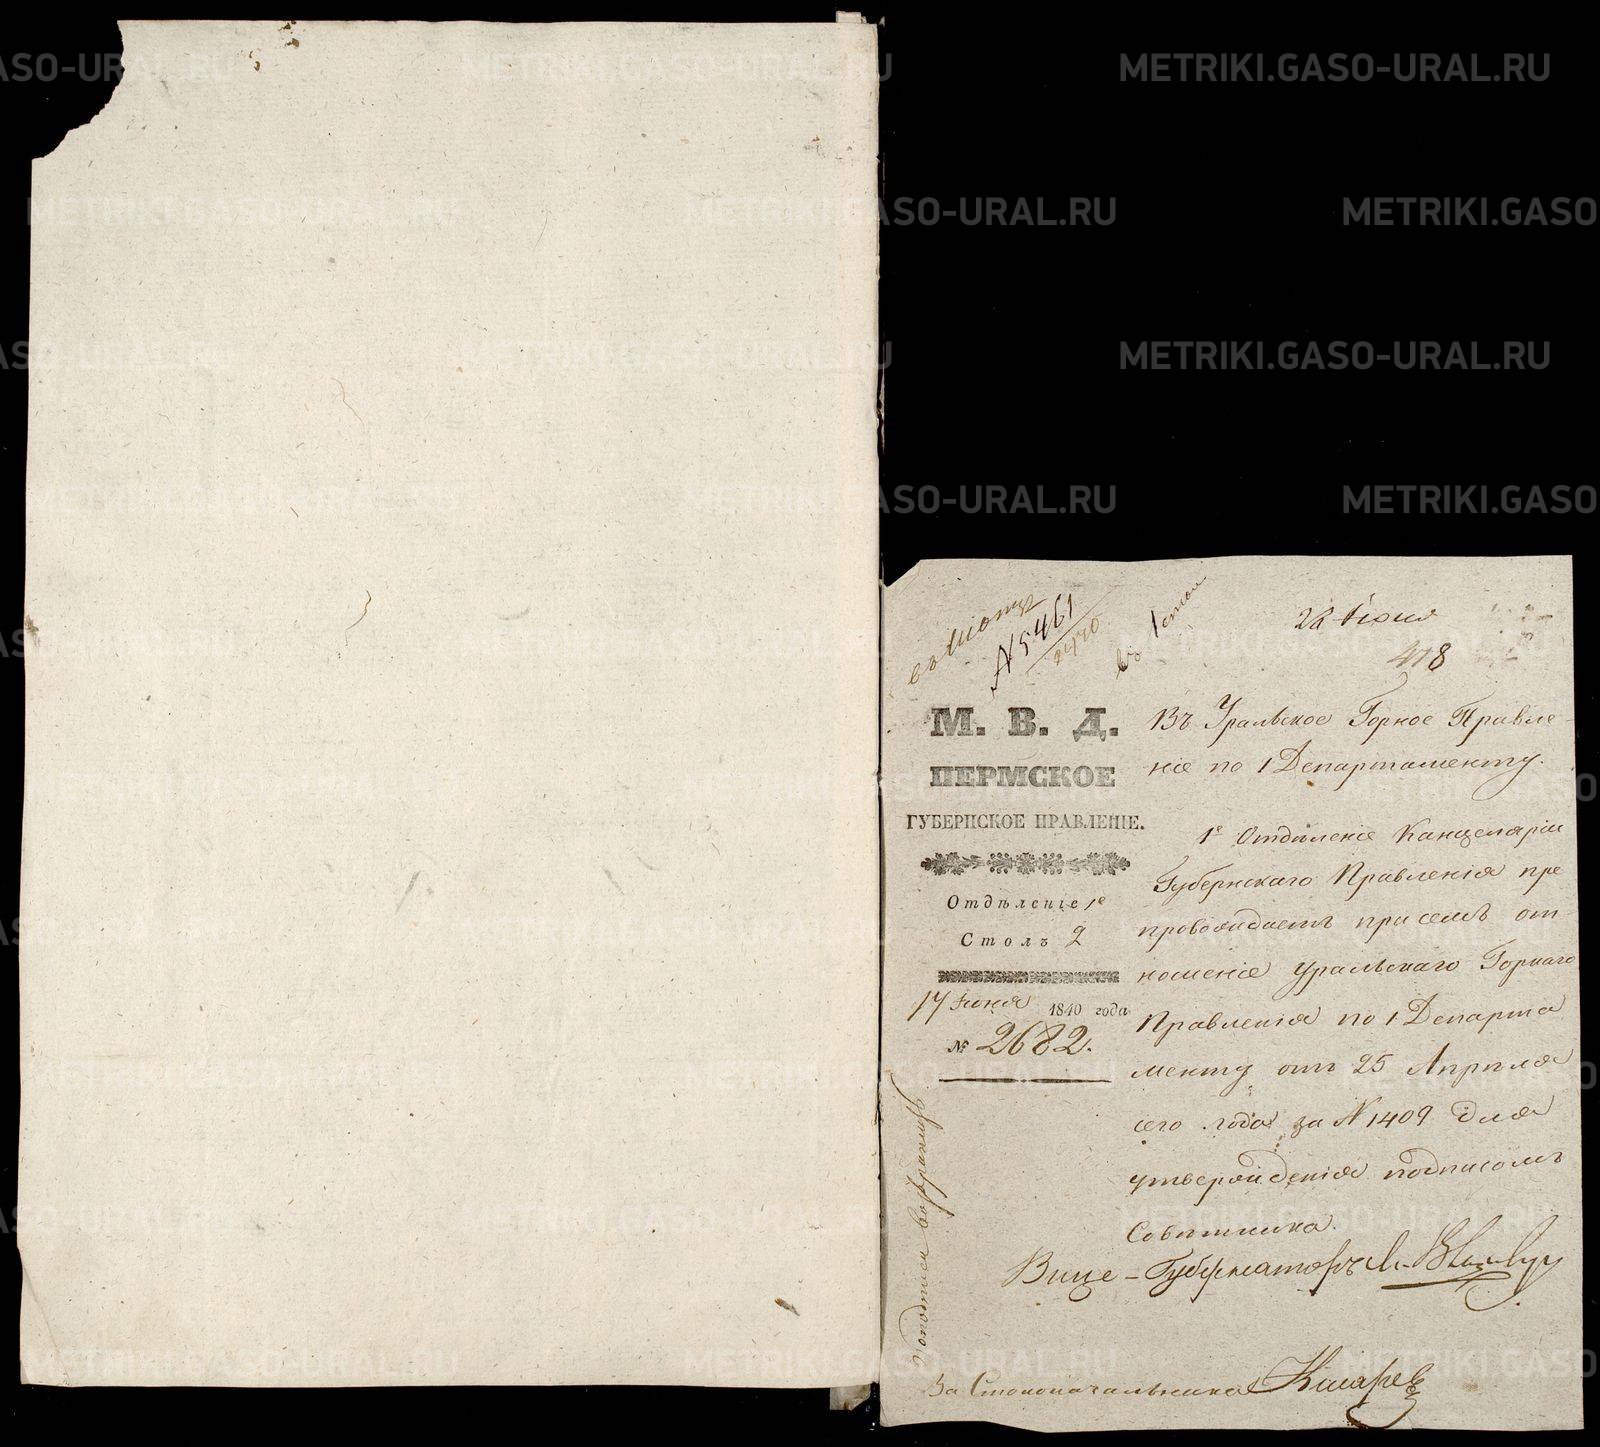 22 Іюня
418
№ 5461
2470
въ 1 стол
М. В. Д.
ПЕРМСКОЕ
ГУБЕРНСКОЕ ПРАВЛЕНІЕ.
Отдѣленіе 1е
Столъ 2
17 Іюня 1840 года
№ 2682.
Въ Уральское Горное Правле-
ніе по 1 Департаменту.
1е Отдѣленіе Канцеляріи
Губернскаго Правленія пре
провождаетъ при семъ от
ношеніе Уральскаго Горнаго
Правленія по 1 Департа
менту отъ 25 Апрѣля
сего года за № 1409 для
утвержденія подписомъ
Совѣтника.
Вице-Губернаторъ
За Столоначальника
METRIKI.GASO-URAL.RU